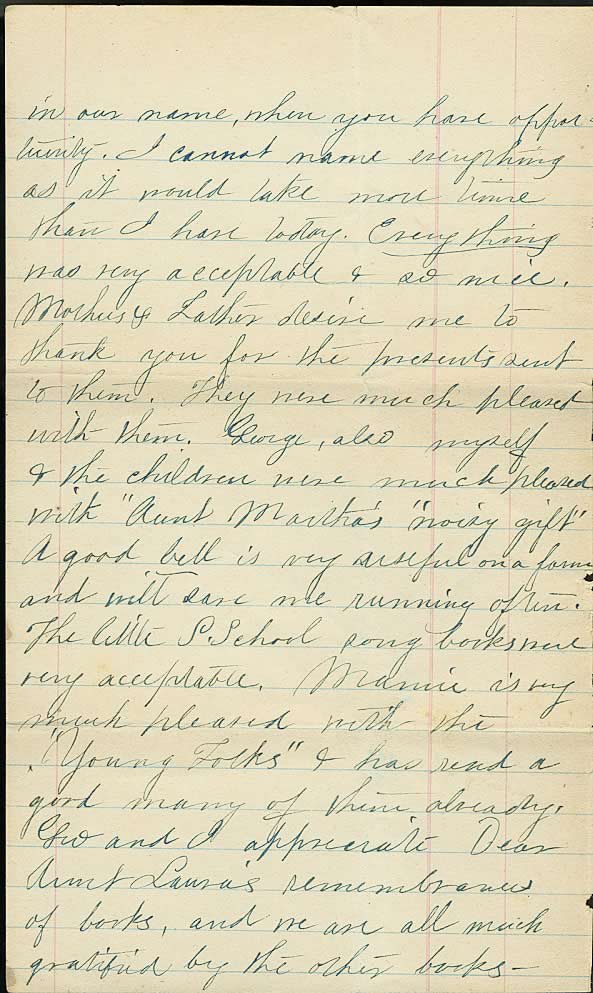 in our name, when you have oppor-
tunity. I cannot name everything
as it would take more time
than I have today. Everything
was very acceptable & so nice.
Mother & Father desire me to
thank you for the presents sent
to them. They were much pleased
with them. George, also myself
& the children were much pleased
with "Aunt Martha's "noisy gift"
A good bell is very useful on a farm
and will save me running often.
The little S. School song books were
very acceptable. Mamie is very
much pleased with the
"Young Folks" & has read a
good many of them already.
Geo and I appreciate Dear
Aunt Laura's remembrances
of books, and we are all much
gratified by the other books-